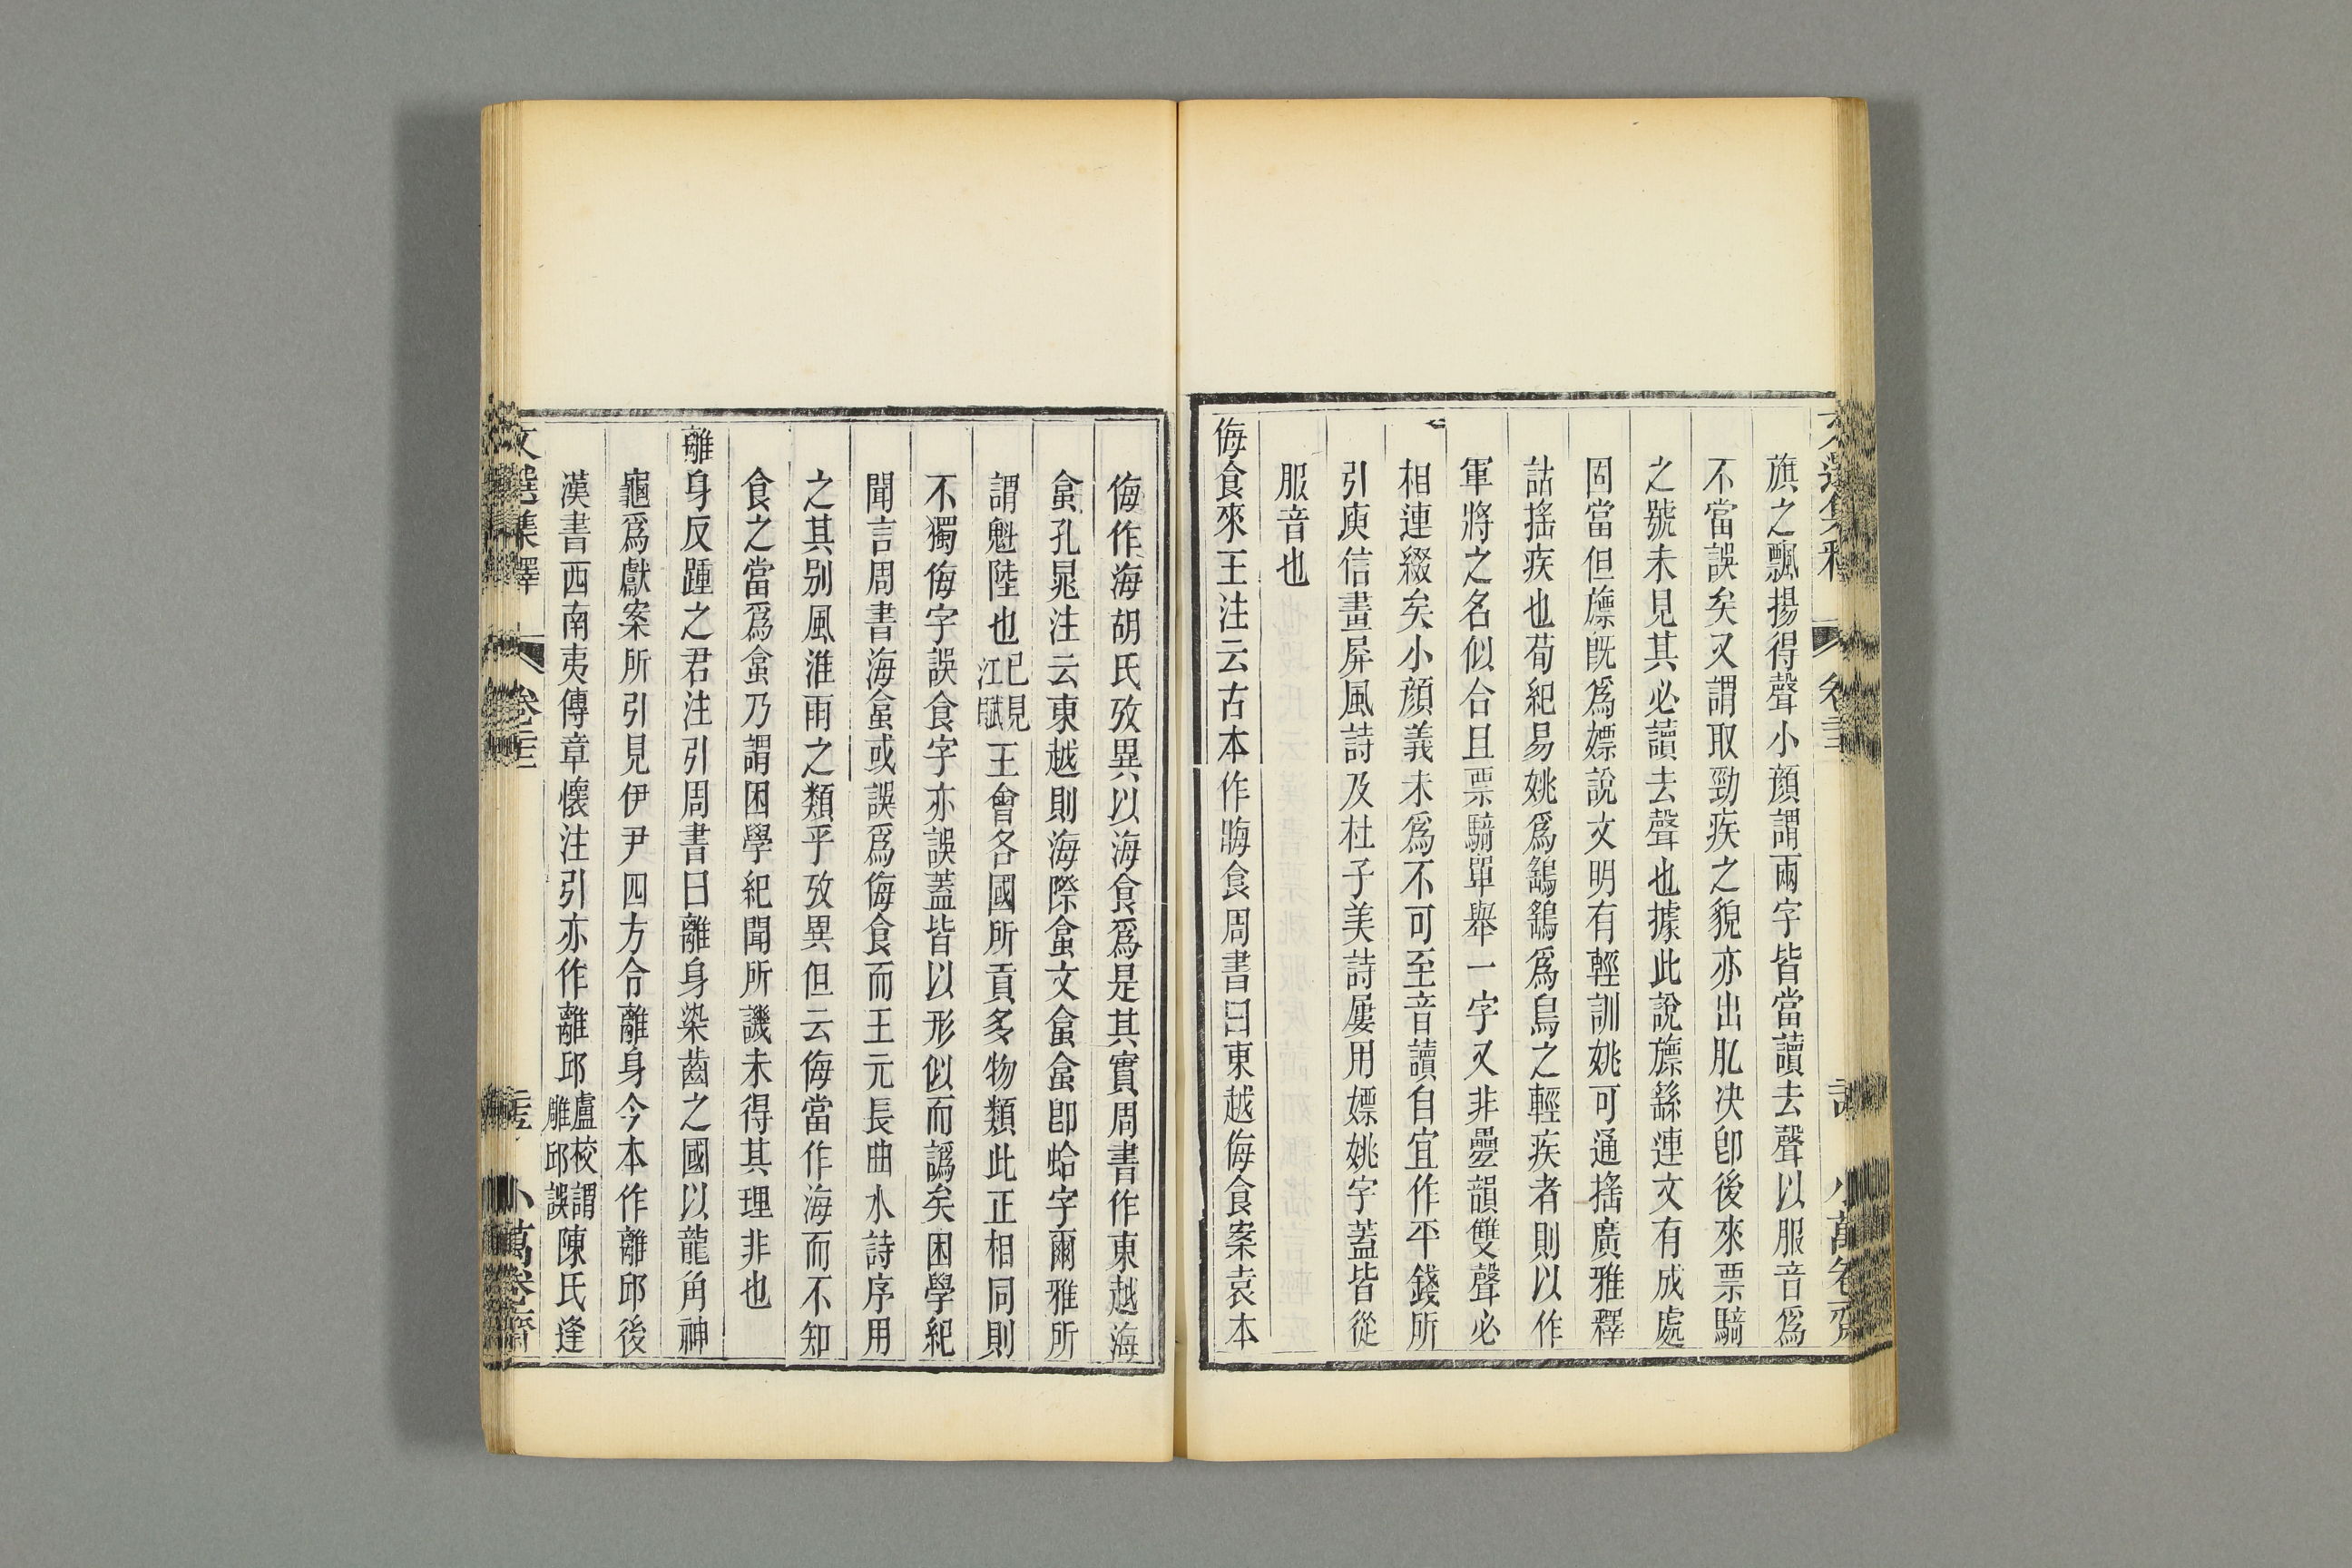 旗之飄揚得聲小顔謂兩字皆當讀去聲以服音爲
不當誤矣又謂取勁疾之貌亦出肊决卽後來票騎
之號未見其必讀去聲也據此說旚繇連文有成處
固當但旚旣爲嫖說文明有輕訓姚可通搖廣雅釋
詁搖疾也荀紀易姚爲鷂鷂爲鳥之輕疾者則以作
軍將之名似合且票騎單舉一字又非疊韻雙聲必
相連綴矣小顔義未爲不可至音讀自宜作平錢所
引庾信畫屏風詩及杜子美詩屢用嫖姚字蓋皆從
服音也
侮食來王注云古本作晦食周書曰東越侮食案袁本
侮作海胡氏攷異以海食爲是其實周書作東越海
蛤孔晁注云東越則海際蛤文蛤蛤卽蛤字爾雅所
謂魁陸也已見江賦王會各國所貢多物類此正相同則
不獨侮字誤食字亦誤蓋皆以形似而譌矣困學紀
聞言周書海蛤或誤爲侮食而王元長曲水詩序用
之其别風淮雨之類乎攷異但云侮當作海而不知
食之當爲蛤乃謂困學紀聞所譏未得其理非也
離身反踵之君注引周書曰離身染齒之國以龍角神
龜爲獻案所引見伊尹四方令離身今本作離邱後
漢書西南夷傳章懷注引亦作離邱盧校謂雕邱誤陳氏逢
文選集釋 卷二十 小萬卷齋